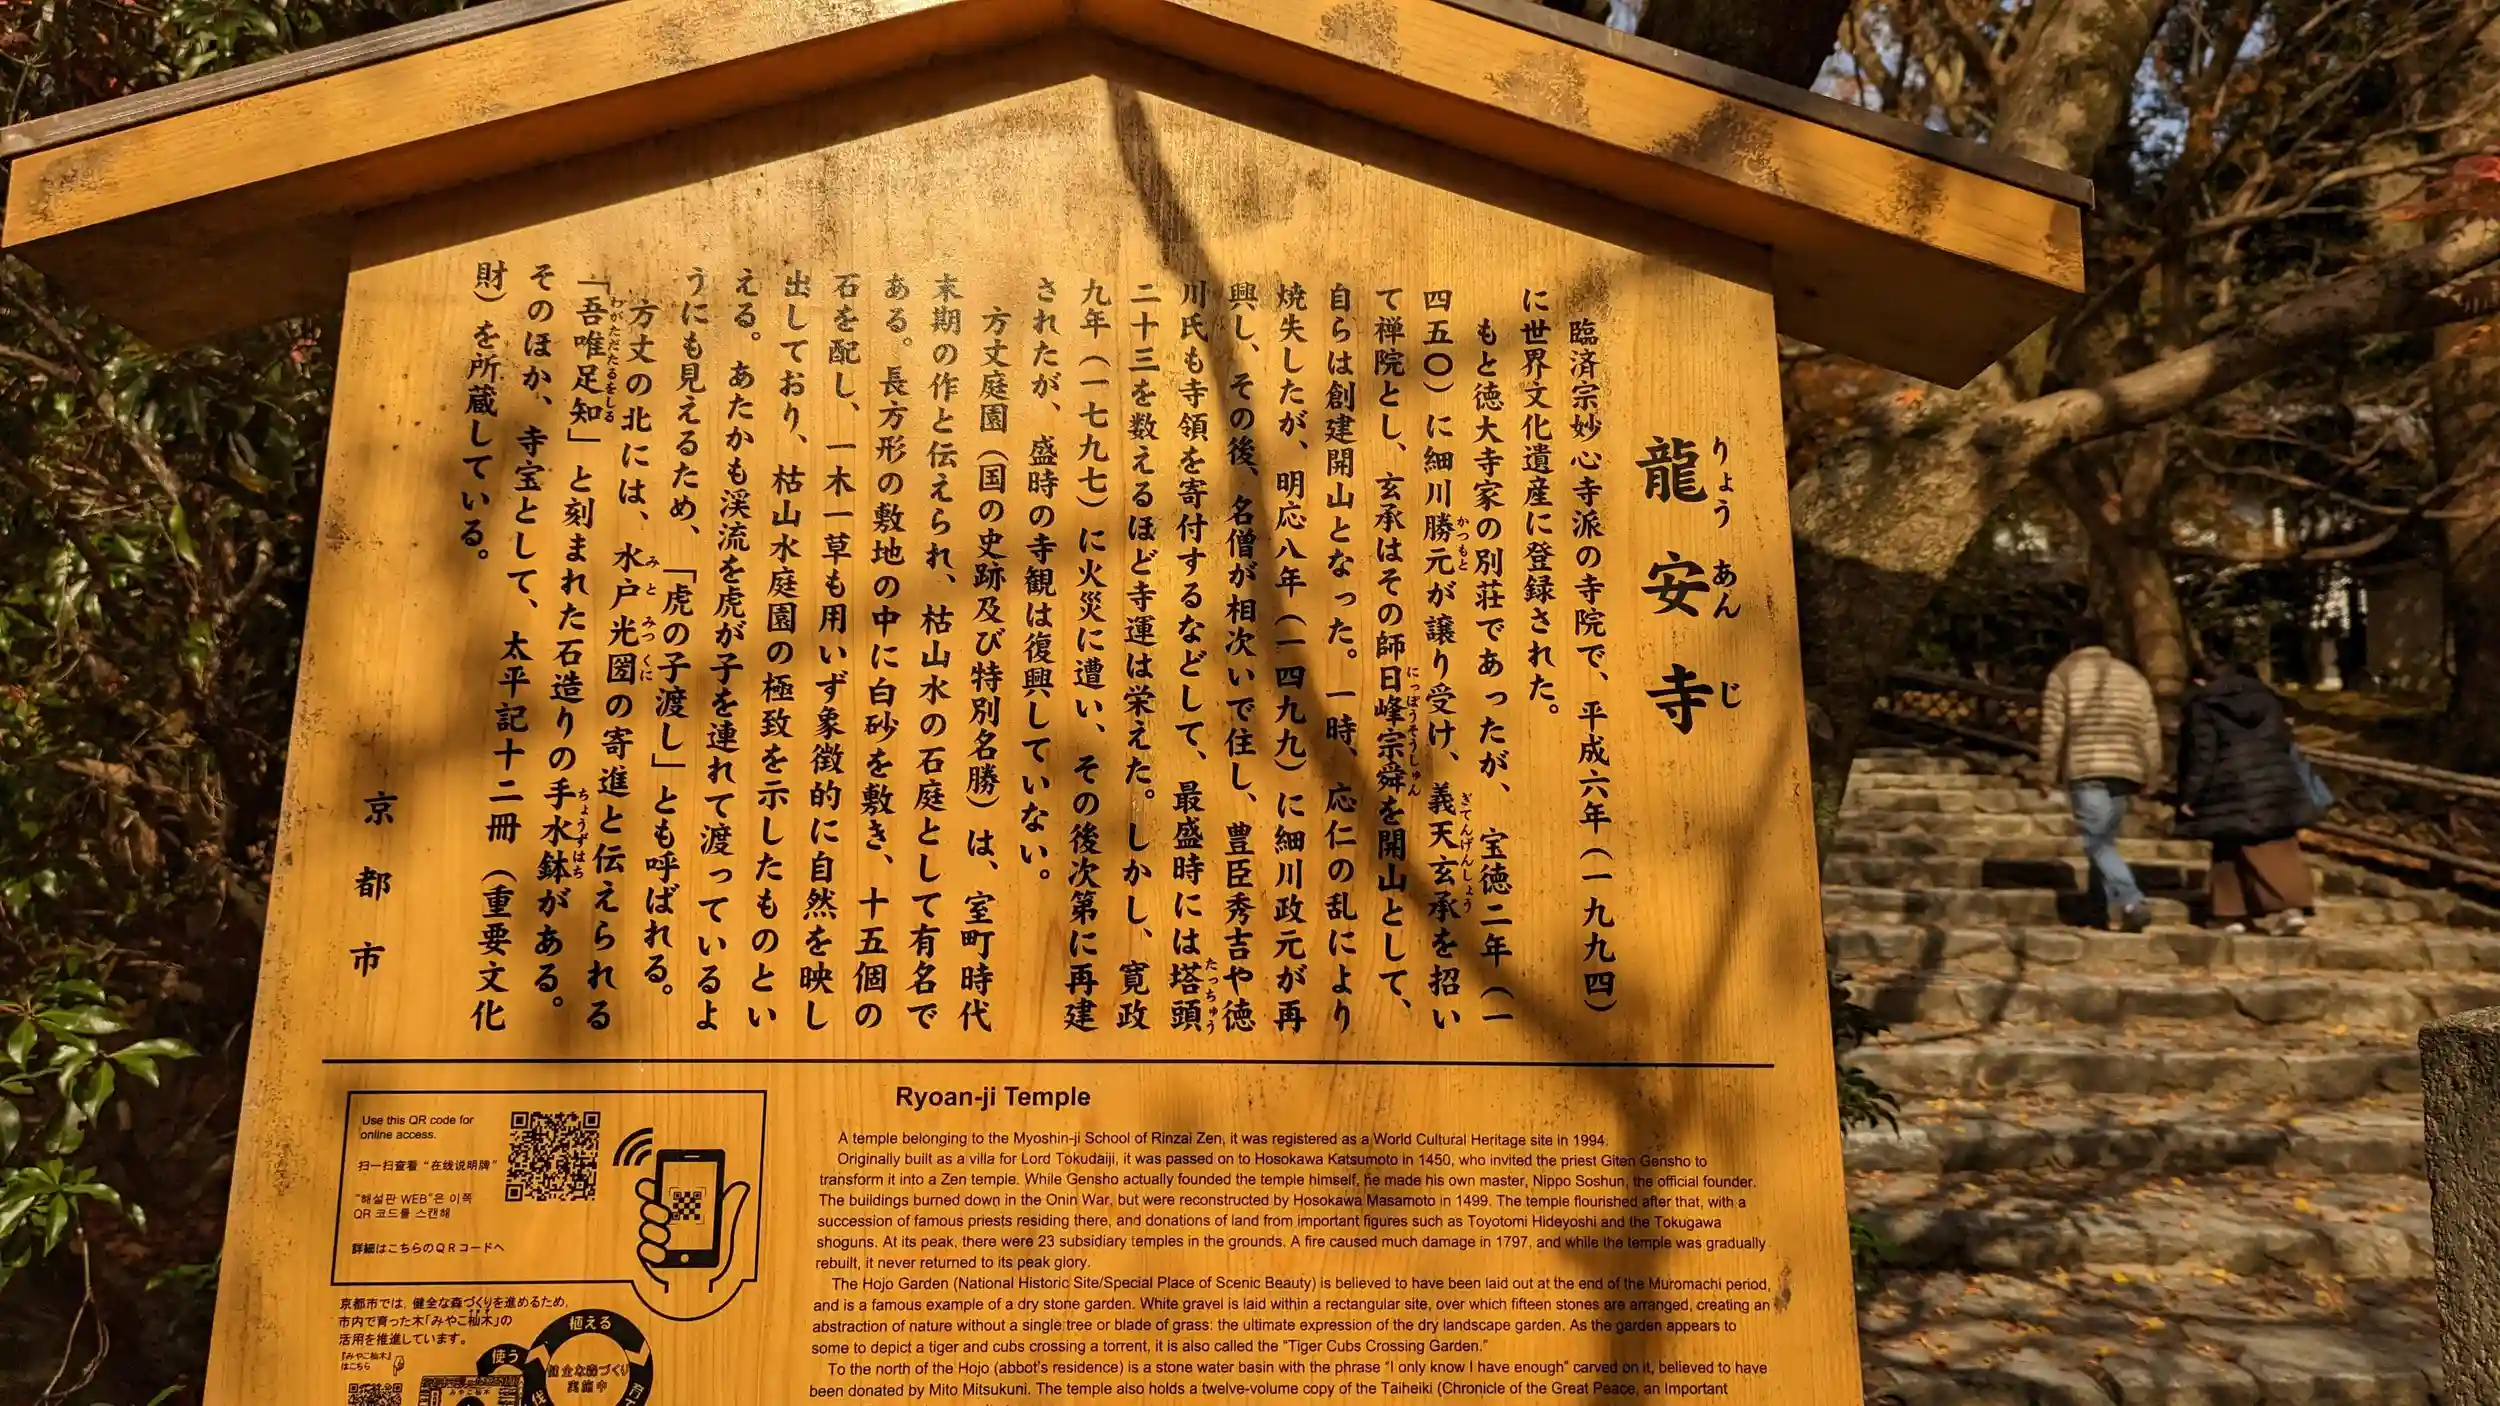 龍安寺
りょう あん じ
臨済宗妙心寺派の寺院で、平成六年（一九九四）
に世界文化遺産に登録された。
もと徳大寺家の別荘であったが、宝徳二年（一
四五〇）に細川勝元が譲り受け、義天玄承を招い
かつもと
ぎてんげんしょう
て禅院とし、玄承はその師日峰宗舜を開山として、
にっぽうそうしゅん
自らは創建開山となった。一時、応仁の乱により
焼失したが、明応八年（一四九九）に細川政元が再
興し、その後、名僧が相次いで住し、豊臣秀吉や徳
川氏も寺領を寄付するなどして、最盛時には塔頭
たっちゅう
二十三を数えるほど寺運は栄えた。しかし、寛政
九年（一七九七）に火災に遭い、その後次第に再建
されたが、盛時の寺観は復興していない。
方丈庭園（国の史跡及び特別名勝）は、室町時代
末期の作と伝えられ、枯山水の石庭として有名で
ある。長方形の敷地の中に白砂を敷き、十五個の
石を配し、一木一草も用いず象徴的に自然を映し
出しており、枯山水庭園の極致を示したものとい
える。あたかも渓流を虎が子を連れて渡っているよ
うにも見えるため、「虎の子渡し」とも呼ばれる。
方丈の北には、水戸光圀の寄進と伝えられる
みと みつくに
「吾唯足知」と刻まれた石造りの手水鉢がある。
わがただたるをしる
ちょうずばち
そのほか、寺宝として、太平記十二冊（重要文化
財）を所蔵している。
京都市
Use this QR code for
online access.
扫一扫查看“在线说明牌”
“해설판 WEB”은 이쪽
QR 코드를 스캔해
詳細はこちらのＱＲコードへ
京都市では、健全な森づくりを進めるため、
市内で育った木「みやこ杣木」の
活用を推進しています。
『みやこ杣木』
はこちら
植える
使う
健全な森づくり
実施中
みやこ杣木
Ryoan-ji Temple
A temple belonging to the Myoshin-ji School of Rinzai Zen, it was registered as a World Cultural Heritage site in 1994.
Originally built as a villa for Lord Tokudaiji, it was passed on to Hosokawa Katsumoto in 1450, who invited the priest Giten Gensho to
transform it into a Zen temple. While Gensho actually founded the temple himself, he made his own master, Nippo Soshun, the official founder.
The buildings burned down in the Onin War, but were reconstructed by Hosokawa Masamoto in 1499. The temple flourished after that, with a
succession of famous priests residing there, and donations of land from important figures such as Toyotomi Hideyoshi and the Tokugawa
shoguns. At its peak, there were 23 subsidiary temples in the grounds. A fire caused much damage in 1797, and while the temple was gradually
rebuilt, it never returned to its peak glory.
The Hojo Garden (National Historic Site/Special Place of Scenic Beauty) is believed to have been laid out at the end of the Muromachi period,
and is a famous example of a dry stone garden. White gravel is laid within a rectangular site, over which fifteen stones are arranged, creating an
abstraction of nature without a single tree or blade of grass: the ultimate expression of the dry landscape garden. As the garden appears to
some to depict a tiger and cubs crossing a torrent, it is also called the “Tiger Cubs Crossing Garden.”
To the north of the Hojo (abbot’s residence) is a stone water basin with the phrase “I only know I have enough” carved on it, believed to have
been donated by Mito Mitsukuni. The temple also holds a twelve-volume copy of the Taiheiki (Chronicle of the Great Peace, an Important